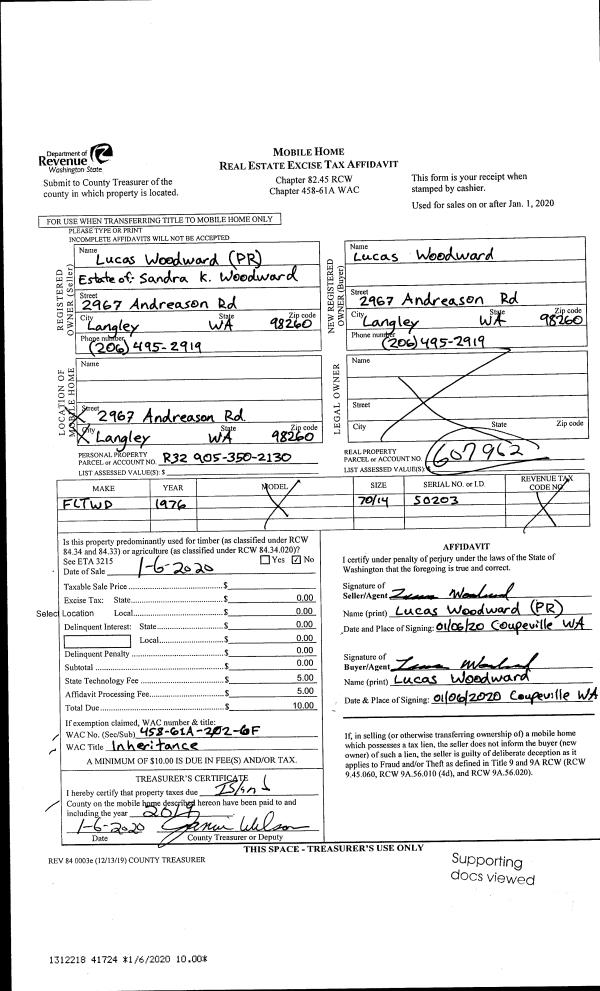 Department of
Revenue
Washington State
Submit to County Treasurer of the
county in which property is located.
MOBILE HOME
REAL ESTATE EXCISE TAX AFFIDAVIT
Chapter 82.45 RCW
Chapter 458-61A WAC
This form is your receipt when
stamped by cashier.
Used for sales on or after Jan. 1, 2020
FOR USE WHEN TRANSFERRING TITLE TO MOBILE HOME ONLY
PLEASE TYPE OR PRINT
INCOMPLETE AFFIDAVITS WILL NOT BE ACCEPTED
REGISTERED
OWNER (Seller)
Name
Lucas Woodward (PR)
Estate of: Sandra K. Woodward
Street
2967 Andreason Rd
City State Zip code
Langley WA 98260
Phone number
(206) 495-2919
NEW REGISTERED
OWNER (Buyer)
Name
Lucas Woodward
Street
2967 Andreason Rd
City State Zip code
Langley WA 98260
Phone number
(206) 495-2919
LOCATION OF
MOBILE HOME
Name
Street
2967 Andreason Rd
City State Zip code
Langley WA 98260
PERSONAL PROPERTY
PARCEL or ACCOUNT NO. R32905-350-2130
LIST ASSESSED VALUE(S): $
LEGAL OWNER
Name
Street
City State Zip code
REAL PROPERTY
PARCEL or ACCOUNT NO. 607962
LIST ASSESSED VALUE(S): $
MAKE YEAR MODEL SIZE SERIAL NO. or I.D. REVENUE TAX
CODE NO.
FLTWD 1976 70/14 S0203
Is this property predominantly used for timber (as classified under RCW
84.34 and 84.33) or agriculture (as classified under RCW 84.34.020)?
See ETA 3215 Yes No
Date of Sale 1-6-2020
Taxable Sale Price $
Excise Tax: State $ 0.00
Select Location Local $ 0.00
Delinquent Interest: State $ 0.00
Local $ 0.00
Delinquent Penalty $ 0.00
Subtotal $ 0.00
State Technology Fee $ 5.00
Affidavit Processing Fee $ 5.00
Total Due $ 10.00
If exemption claimed, WAC number & title:
WAC No. (Sec/Sub) 458-61A-202-6F
WAC Title Inheritance
A MINIMUM OF $10.00 IS DUE IN FEE(S) AND/OR TAX.
TREASURER'S CERTIFICATE
I hereby certify that property taxes due Island
County on the mobile home described hereon have been paid to and
including the year 2019
1-6-2020
Date County Treasurer or Deputy
AFFIDAVIT
I certify under penalty of perjury under the laws of the State of
Washington that the foregoing is true and correct.
Signature of
Seller/Agent
Name (print) Lucas Woodward (PR)
Date and Place of Signing: 01/06/20 Coupeville WA
Signature of
Buyer/Agent
Name (print) Lucas Woodward
Date & Place of Signing: 01/06/2020 Coupeville WA
If, in selling (or otherwise transferring ownership) of a mobile home
which possesses a tax lien, the seller does not inform the buyer (new
owner) of such a lien, the seller is guilty of deliberate deception as it
applies to Fraud and/or Theft as defined in Title 9 and 9A RCW (RCW
9.45.060, RCW 9A.56.010 (4d), and RCW 9A.56.020).
THIS SPACE - TREASURER'S USE ONLY
REV 84 0003e (12/13/19) COUNTY TREASURER
Supporting
docs viewed
1312218 41724 *1/6/2020 10.00*